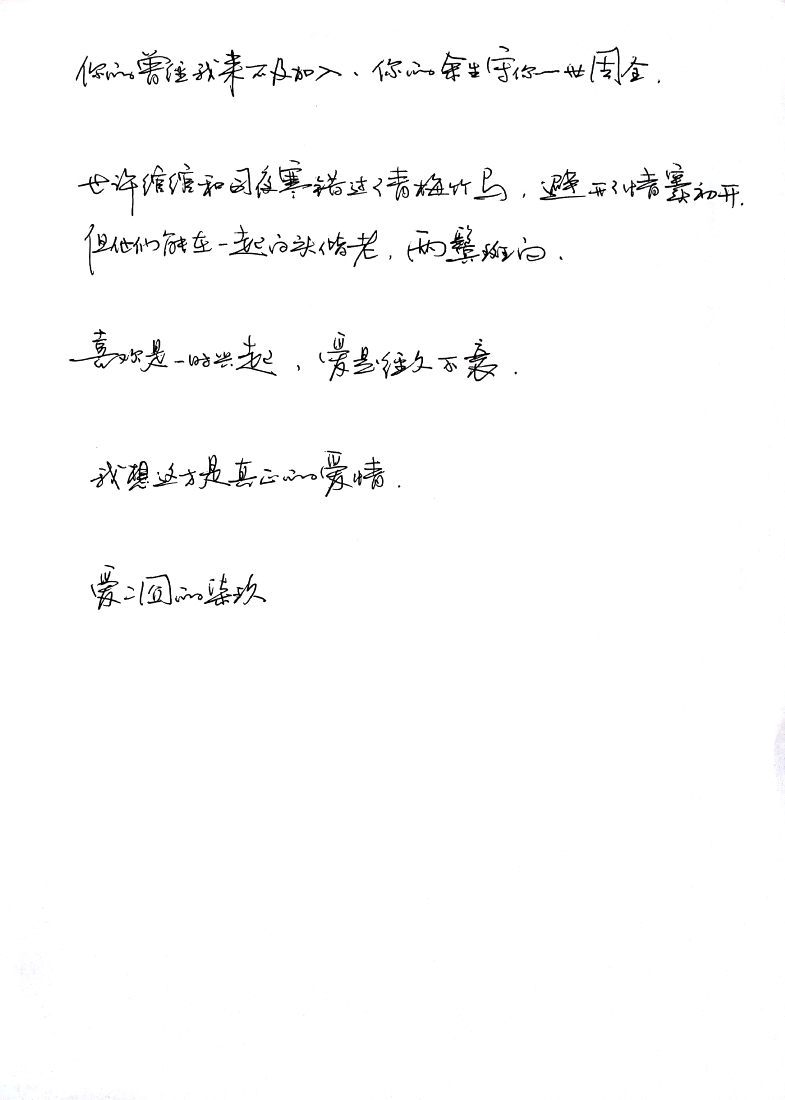 你的曾经我来不及加入、你的余生守你一世周全.
也许绾绾和司夜寒错过了青梅竹马, 避开了情窦初开.
但他们能在一起白头偕老, 两鬓斑白.
喜欢是一时兴起, 爱是经久不衰.
我想这才是真正的爱情.
爱二囧的柒玖